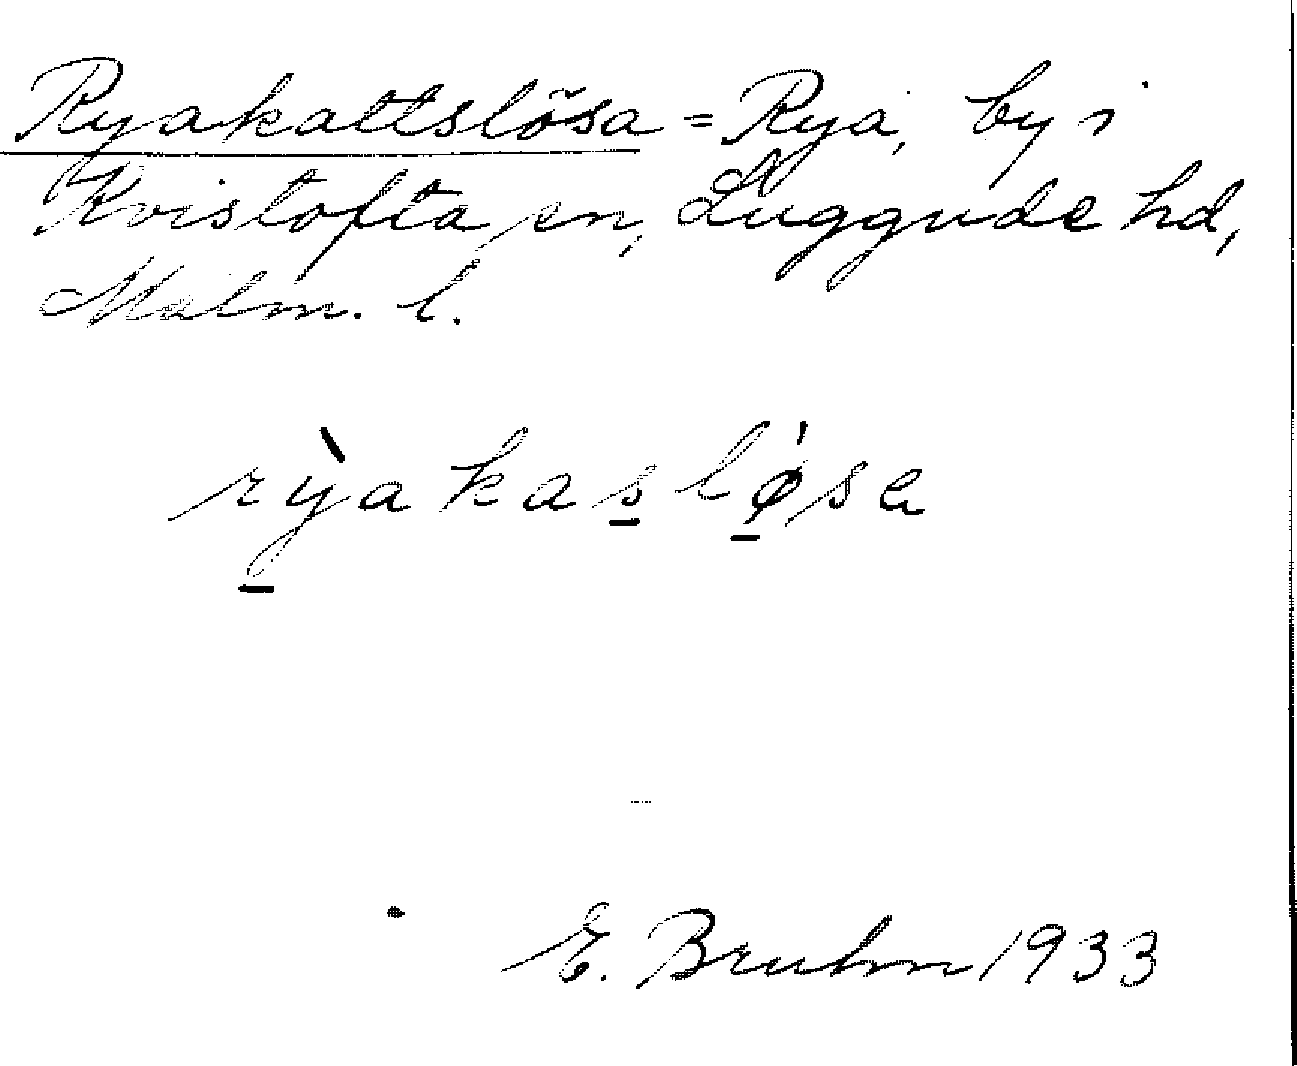 Ryakattslösa = Rya, by i
Kvistofta sn, Luggude hd,
Malm. l.
rỳakaslø̍sa
E. Bruhn 1933